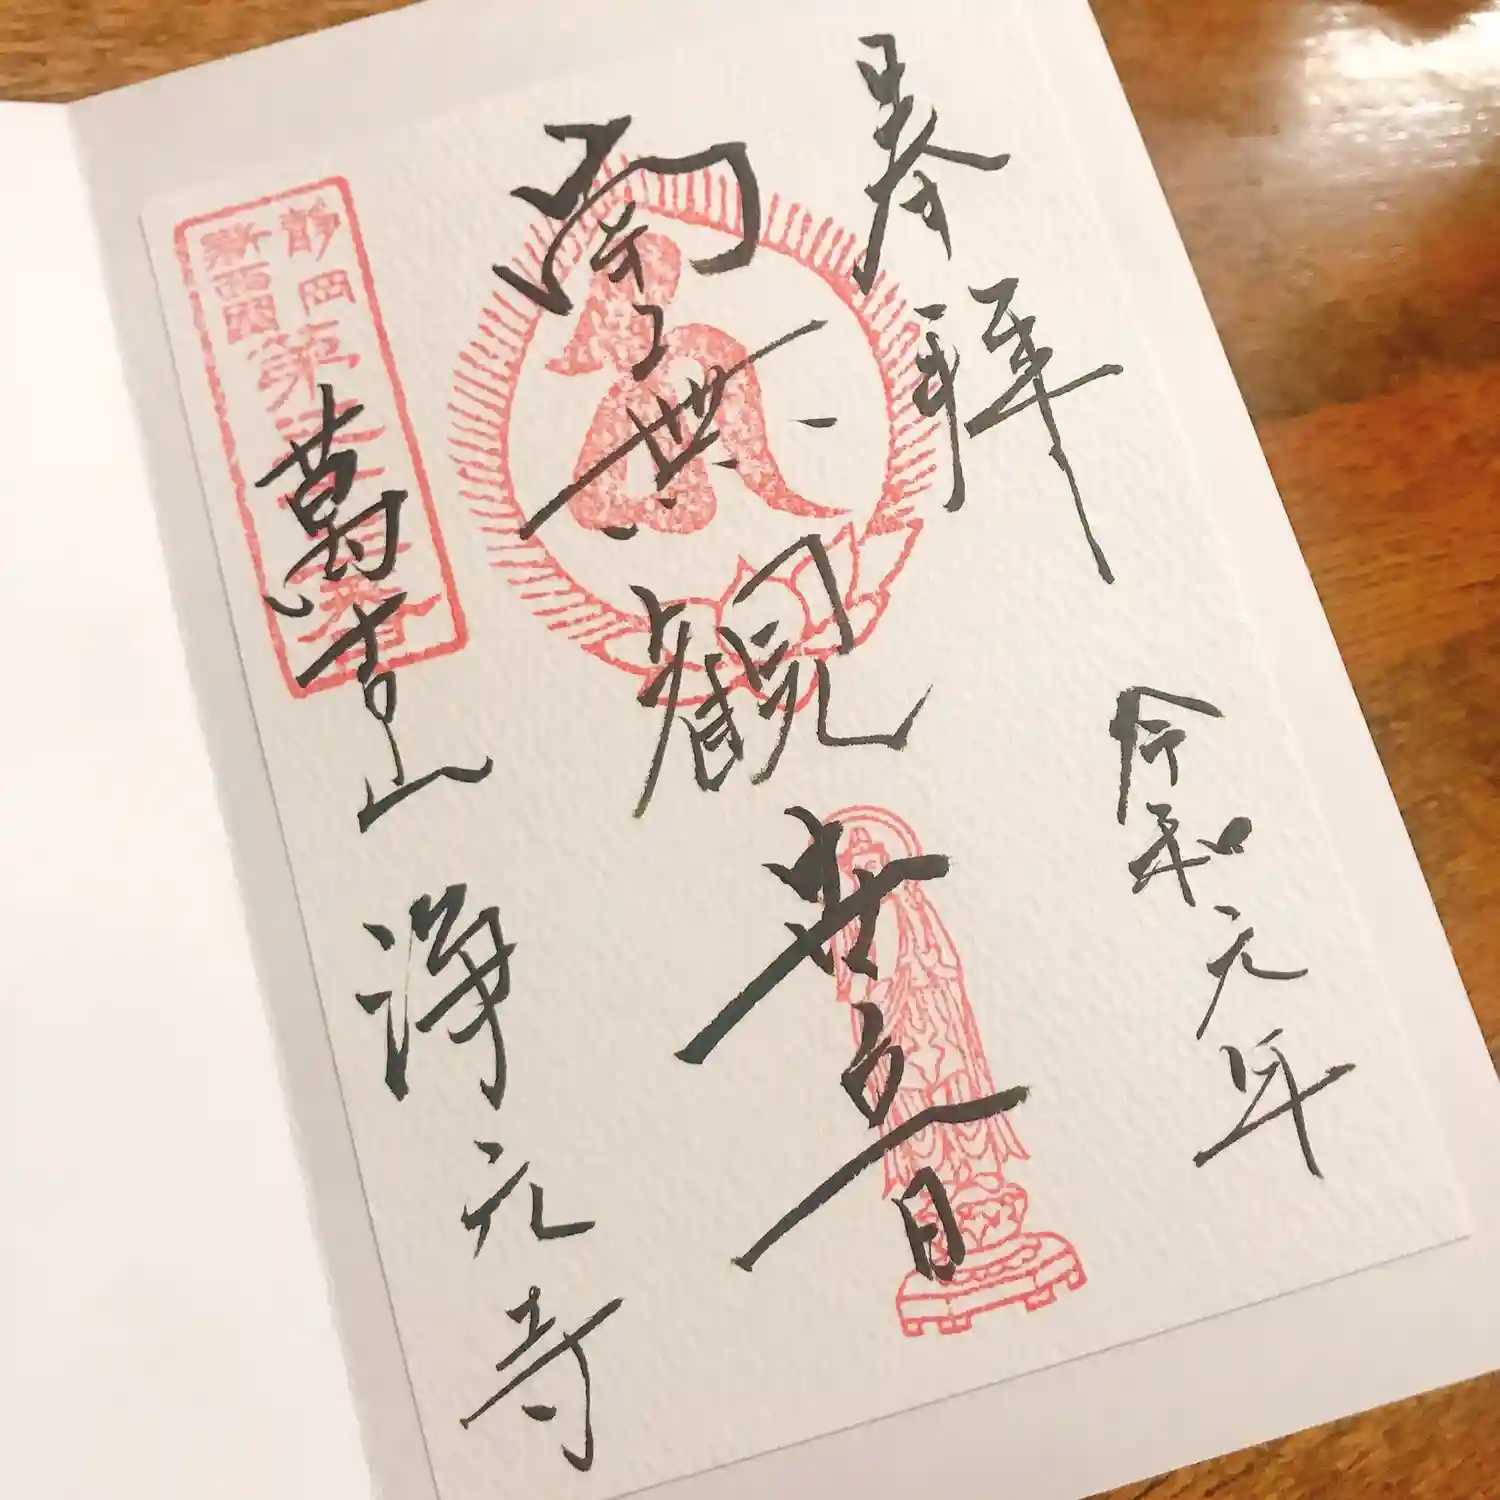 奉拝
令和元年
南無観世音
萬吉山 浄元寺
静岡第
新西国